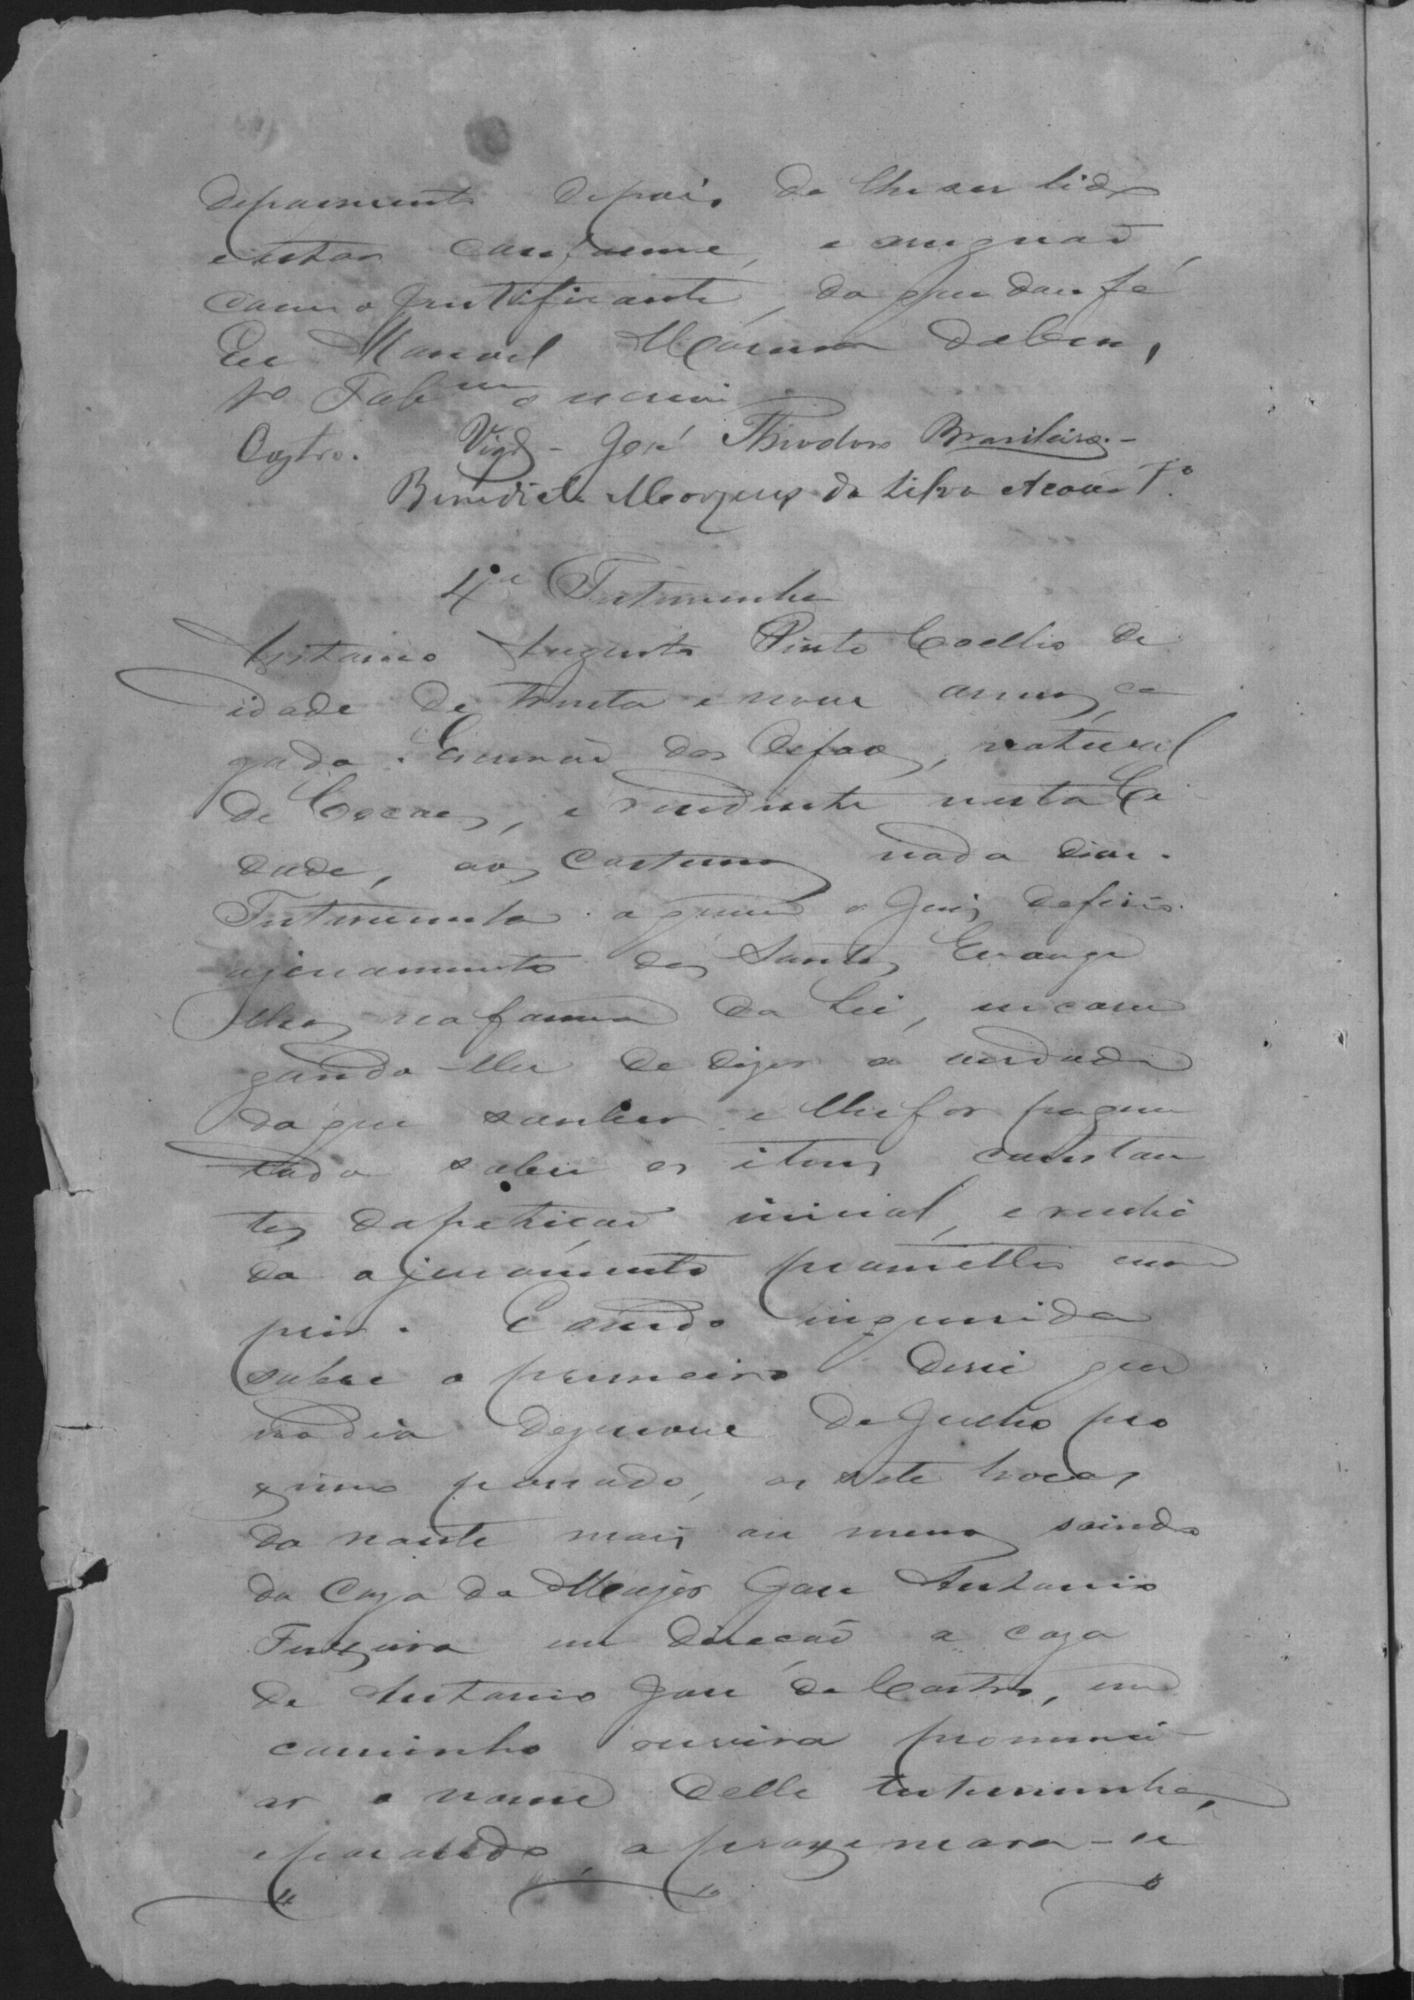 depoimento depois de lhe ser lido
e estar conforme, e assignão
com o justificante, do que dou fé
Eu Manoel
1º Tab.am o escrevi
Castro. Vigº- José Theodoro Brasileiro.-
Benedicto Marques da Silva Acauã 1.º
4.a Testemunha
Antonio Augusto Pinto Coelho de
idade de trinta e nove annos, ca
zado, natural
de Cocaes, e residente nesta Ci
dade, aos costumes nada disse.
Testemunha a quem o Juiz deferio
o juramento dos Santos Evange
lhos na forma da Lei, encarre
gando-lhe de dizer a verdade
do que souber e lhe for pergun
tado sobre os itens constan
tes da petição inicial, e recebi
do o juramento prometteo cum
prir. E sendo inquirida
sobre o primeiro disse que
no dia dezenove de Julho pro
ximo passado, as sete horas
da noute mais ou menos saindo
da caza do Major José Antonio
Teixeira em direcção a caza
de Antonio José de Castro, em
caminho ouvira pronunci-
ar o nome delle testemunha,
e parando, aproximara-se